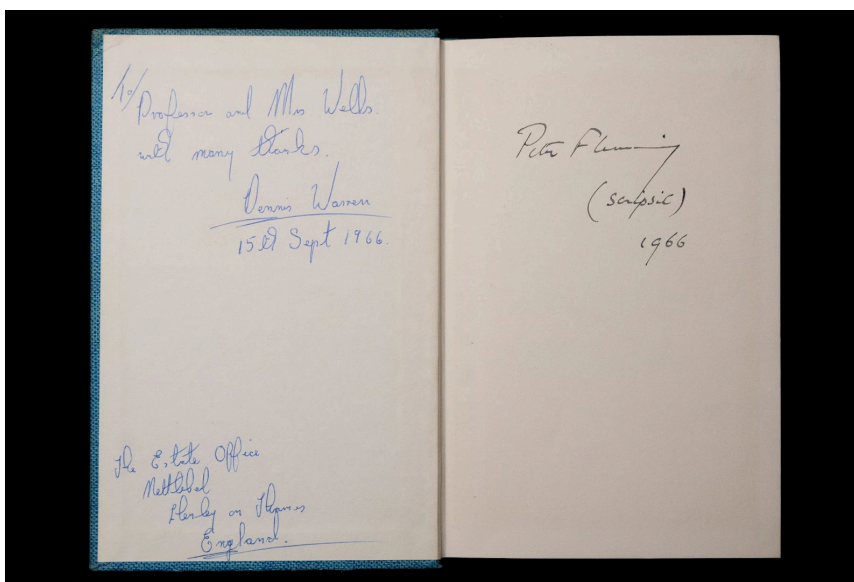 To/
Professor and Mrs Wells.
with many thanks.
Dennis Warren
15th Sept 1966.
The Estate Office
Nettlebed
Henley on Thames
England.
Peter Fleming
(scripsit)
1966